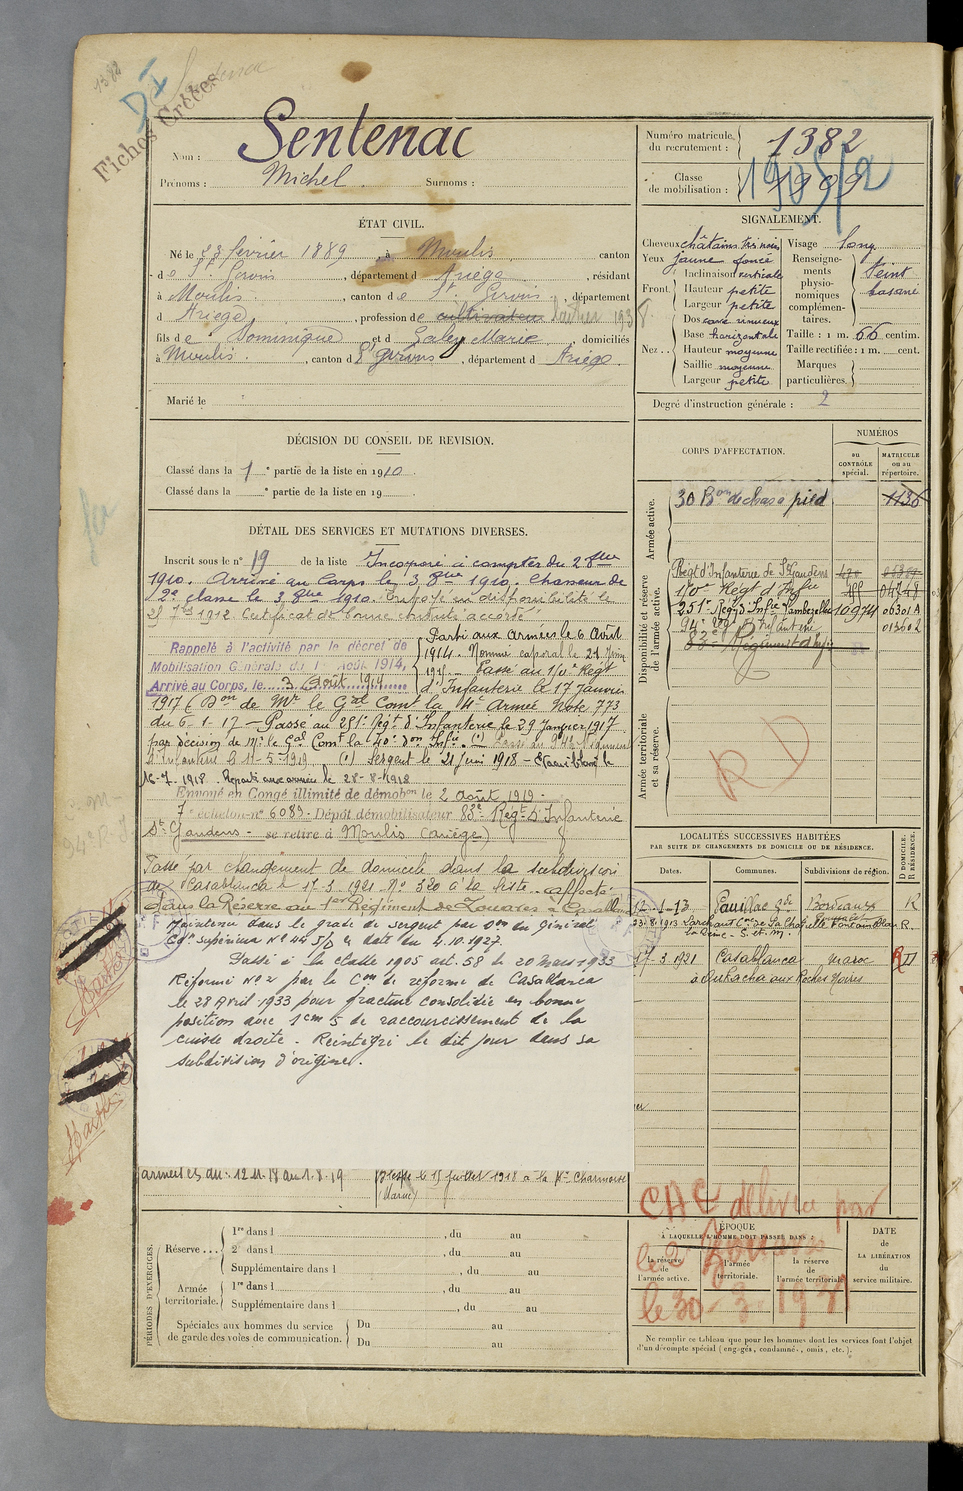 1382
DI
Sentenac
Fiches Créées
Nom : Sentenac
Prénoms : Michel. Surnoms :
ÉTAT CIVIL.
Né le 23 février 1889, à Moulis canton
de St Girons, département d Ariège, résidant
à Moulis, canton de St Girons, département
d Ariège, profession de cultivateur laitier 1938.
fils de Dominique et d Galey Marie, domiciliés
à Moulis, canton d St Girons, département d Ariège.
Marié le
DÉCISION DU CONSEIL DE REVISION.
Classé dans la 1e partie de la liste en 1910.
Classé dans la e partie de la liste en 19
DÉTAIL DES SERVICES ET MUTATIONS DIVERSES.
Inscrit sous le n° 19 de la liste Incorporé à compter du 2 8bre
1910. Arrivé au Corps le 3 8bre 1910. Chasseur de
2e classe le 3 8bre 1910. Envoyé en disponibilité le
25 7bre 1912 Certificat de bonne conduite accordé
Rappelé à l'activité par le décret de
Mobilisation Générale du 1er Août 1914,
Arrivé au Corps, le 3 Août 1914
Parti aux Armées le 6 Août
1914. Nommé caporal le 21 Juin
Passé au 170e Régt
d'Infanterie le 17 Janvier
1917 (Don de Mr le Gal Comt la 4e Armée Note 773
du 6-1-17 – Passé au 251e Régt d'Infanterie le 29 Janvier 1917
par décision de Mr le Gal Comt la 40e Don Infie. (1) Passé au 94e Régiment
d'Infanterie le 11-5-1919 (1) Sergent le 21 Juin 1918 –
16-7-1918. Reparti aux armées le 28-8-1918
Envoyé en Congé illimité de démobon le 2 Août 1919.
7e échelon n° 6089. Dépôt démobilisateur 83e Régt d'Infanterie
St Gaudens – se retire à Moulis (Ariège)
Passé par changement de domicile dans la subdivision
de Casablanca le 17-3-1921 No 320 à la liste. affecté
dans la Réserve au 1er Régiment de Zouaves à Casablanca
Maintenu dans le grade de sergent par Don du Général
Cdt supérieur No 144 5/D en date du 4.10.1927.
Passé à la classe 1905 art. 58 le 20 Mars 1933
Réformé No 2 par le Con de réforme de Casablanca
le 28 Avril 1933 pour fracture consolidée en bonne
position avec 1cm 5 de raccourcissement de la
cuisse droite. Réintégré le dit jour dans sa
subdivision d'origine.
armées du 12.11.18 au 1.8.19
Blessé le 15 juillet 1918 à la Charmoise
(Marne)
PÉRIODES D'EXERCICES.
Réserve ...
1re dans l , du au
2e dans l , du au
Supplémentaire dans l , du au
Armée territoriale.
1re dans l , du au
Supplémentaire dans l , du au
Spéciales aux hommes du service
de garde des voies de communication.
Du au
Du au
Numéro matricule
du recrutement : 1382
Classe
de mobilisation : 1909
1905/2
SIGNALEMENT.
Cheveux châtains très noirs
Yeux jaune foncé
Front. Inclinaison verticale
Hauteur petite
Largeur petite
Nez .. Dos cave sinueux
Base horizontale
Hauteur moyenne
Saillie moyenne
Largeur petite
Visage long
Renseignements
physionomiques
complémentaires.
Teint
basané
Taille : 1 m. 66 centim.
Taille rectifiée : 1 m. cent.
Marques
particulières.
Degré d'instruction générale : 2
CORPS D'AFFECTATION.
NUMÉROS
au
CONTRÔLE
spécial.
MATRICULE
ou au
répertoire.
Armée active.
30 Bon de chas à pied 1136
Disponibilité et réserve
de l'armée active.
Régt d'Infanterie de St Gaudens
170e Régt d'Infie
251e Régt d'Infie 10974 06301A
94e Rgt d'Infanterie 013602
83e Régiment d'Infie
Armée territoriale
et sa réserve.
RD
LOCALITÉS SUCCESSIVES HABITÉES
PAR SUITE DE CHANGEMENTS DE DOMICILE OU DE RÉSIDENCE.
Dates.
Communes.
Subdivisions de région.
D DOMICILE.
R RÉSIDENCE.
12-1-13 Pauillac Gde Bordeaux R
23.8.1913 Fontainebleau R.
S. et M.
17-3-1921 Casablanca Maroc RD
à Oukacha aux Roches Noires
CAC délivrée par
le 2 Zouaves
le 30-3-1931
ÉPOQUE
À LAQUELLE L'HOMME DOIT PASSER DANS :
la réserve
de
l'armée active.
l'armée
territoriale.
la réserve
de
l'armée territoriale.
DATE
de
LA LIBÉRATION
du
service militaire.
Ne remplir ce tableau que pour les hommes dont les services font l'objet
d'un décompte spécial (engagés, condamnés, omis, etc.).